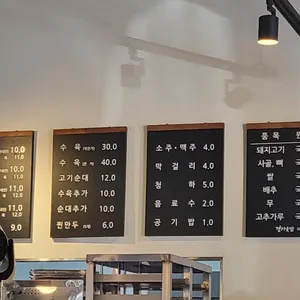 10.0
11.0
10.0
11.0
11.0
12.0
11.0
12.0
9.0
수육 30.0
수육 40.0
고기순대 12.0
수육추가 10.0
순대추가 10.0
찐만두 6.0
소주·맥주 4.0
막걸리 4.0
청하 5.0
음료수 2.0
공기밥 1.0
품목
돼지고기
사골, 뼈
쌀
배추
무
고추가루